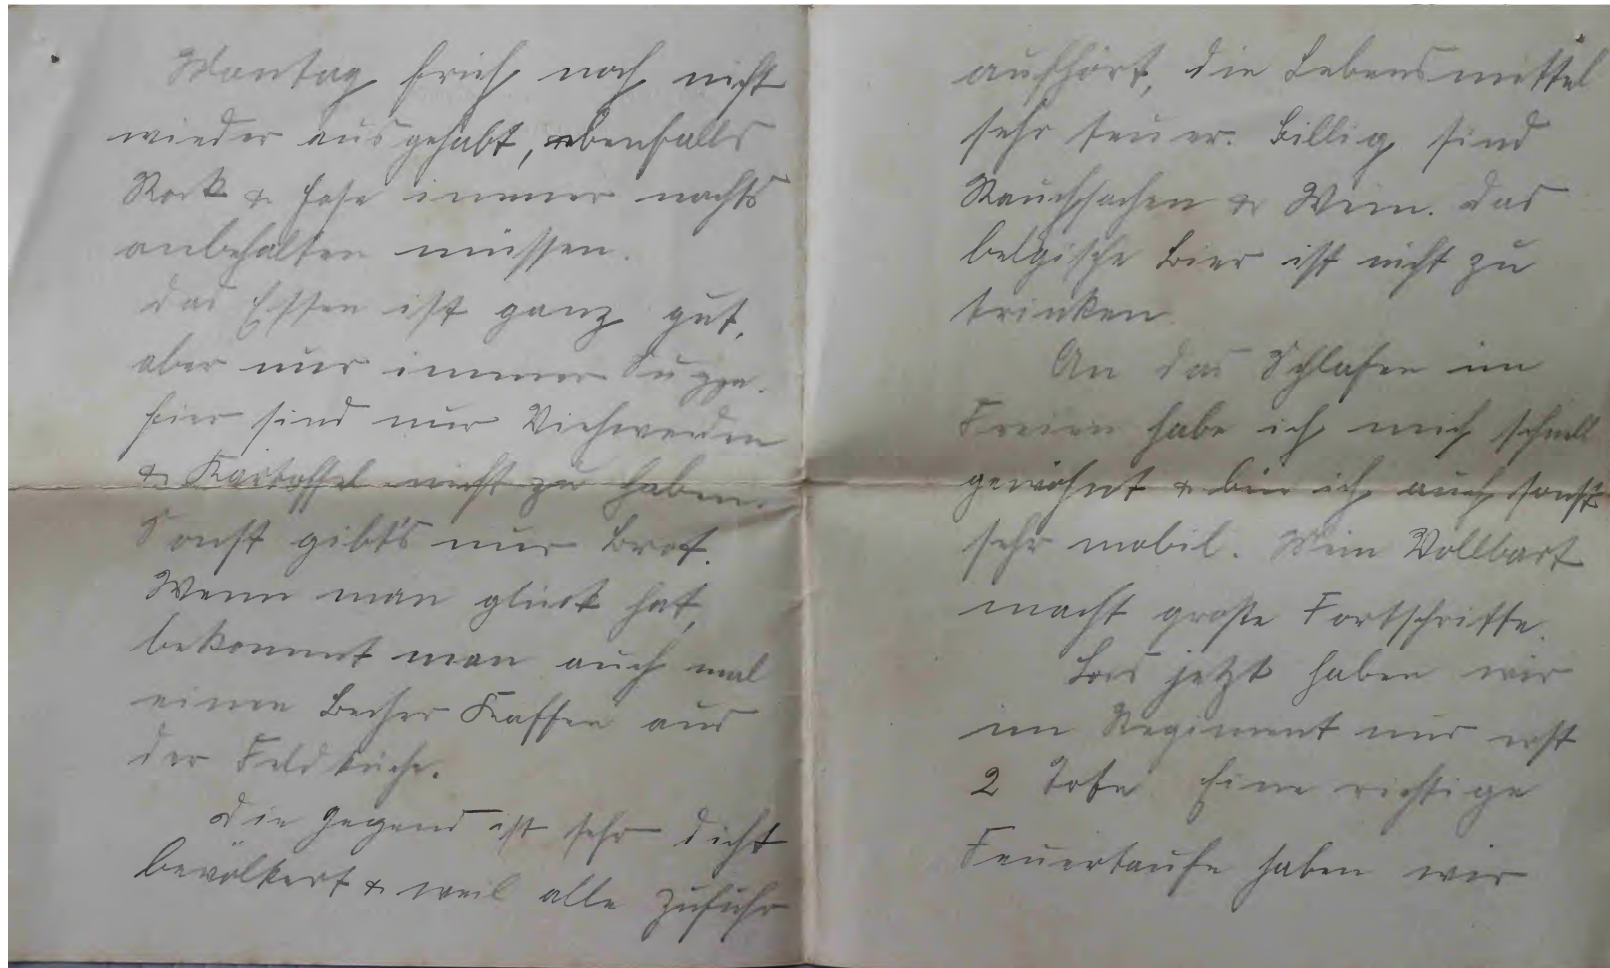 Montag früh noch nicht
wieder ausgehabt, ebenfalls
Rock & Hose immer nachts
anbehalten müssen.
Das Essen ist ganz gut,
aber nur immer Suppe.
Hier sind nur Viehweiden
& Kartoffel nicht zu haben.
Sonst gibt's nur Brot.
Wenn man glück hat,
bekommt man auch mal
einen Becher Kaffee aus
der Feldküche.
Die Gegend ist sehr dicht
bevölkert & weil alle Zufuhr
aufhört, die Lebensmittel
sehr teuer. Billig sind
Rauchsachen & Wein. Das
belgische Bier ist nicht zu
trinken.
An das Schlafen im
Freien habe ich mich schnell
gewöhnt & bin ich auch sonst
sehr mobil. Mein Vollbart
macht große Fortschritte.
Bis jetzt haben wir
im Regiment nur erst
2 Tote. Eine richtige
Feuertaufe haben wir